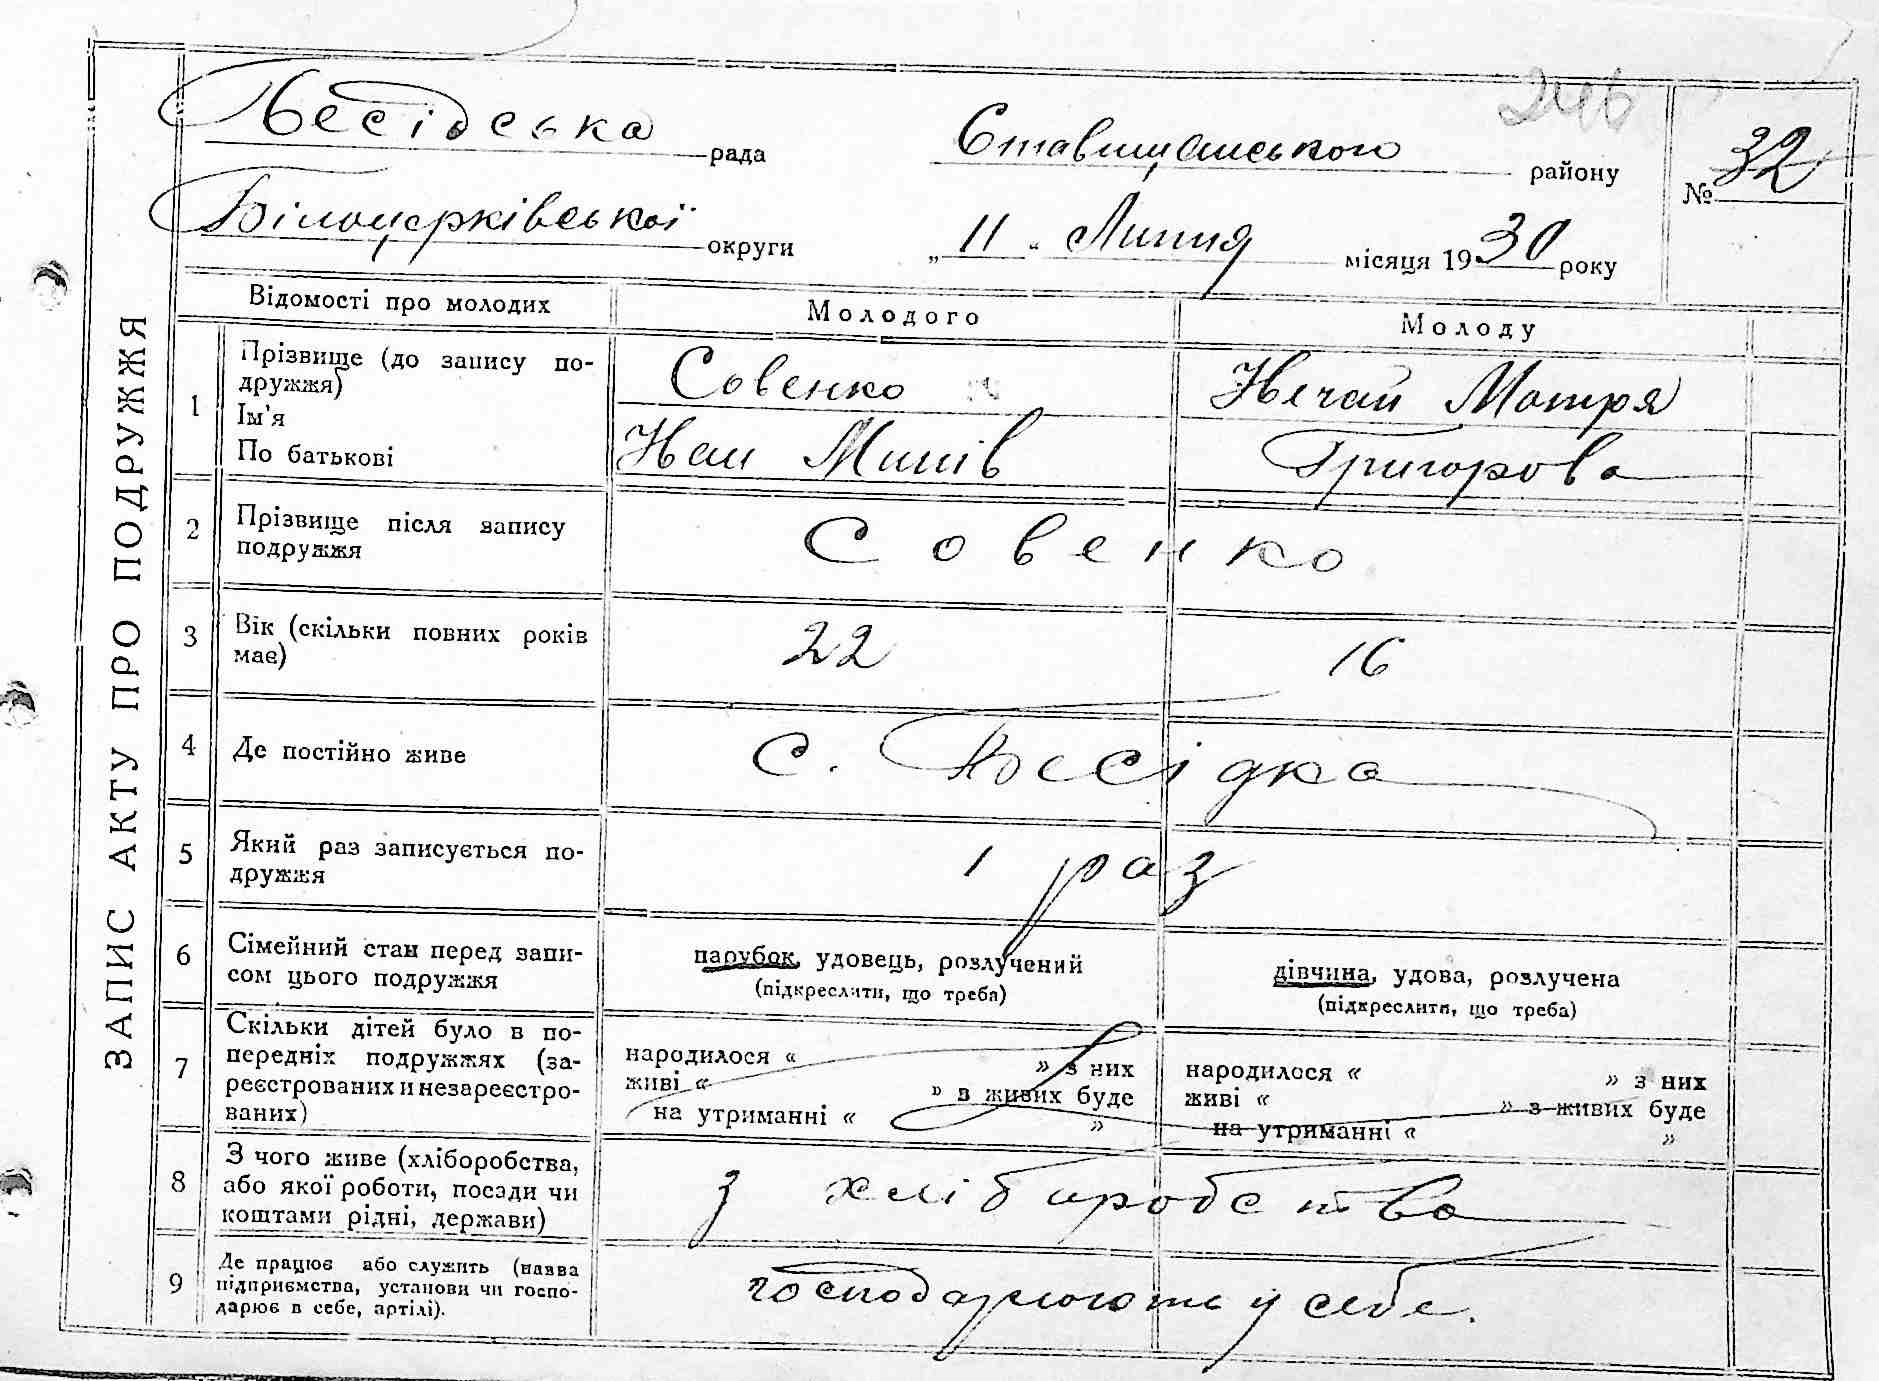 ЗАПИС АКТУ ПРО ПОДРУЖЖЯ
Бесідська рада Ставищанського району № 32
Білоцерківської округи „ 11 “ Липня місяця 1930 року
Відомості про молодих Молодого Молоду
1 Прізвище (до запису по-
дружжя) Совенко Нечай Мотря
Ім'я
По батькові Минів Григорова
2 Прізвище після запису
подружжя Совенко
3 Вік (скільки повних років
має) 22 16
4 Де постійно живе с. Бесідка
5 Який раз записується по-
дружжя 1 раз
6 Сімейний стан перед запи-
сом цього подружжя парубок, удовець, розлучений дівчина, удова, розлучена
(підкреслити, що треба) (підкреслити, що треба)
7 Скільки дітей було в по-
передніх подружжях (за-
реєстрованих и незареєстро-
ваних) народилося « » з них народилося « » з них
живі « » з живих буде живі « » з живих буде
на утриманні « » на утриманні « »
8 З чого живе (хліборобства,
або якої роботи, посади чи
коштами рідні, держави) з хліборобства
9 Де працює або служить (назва
підприємства, установи чи госпо-
дарює в себе, артілі). господарюють у себе.